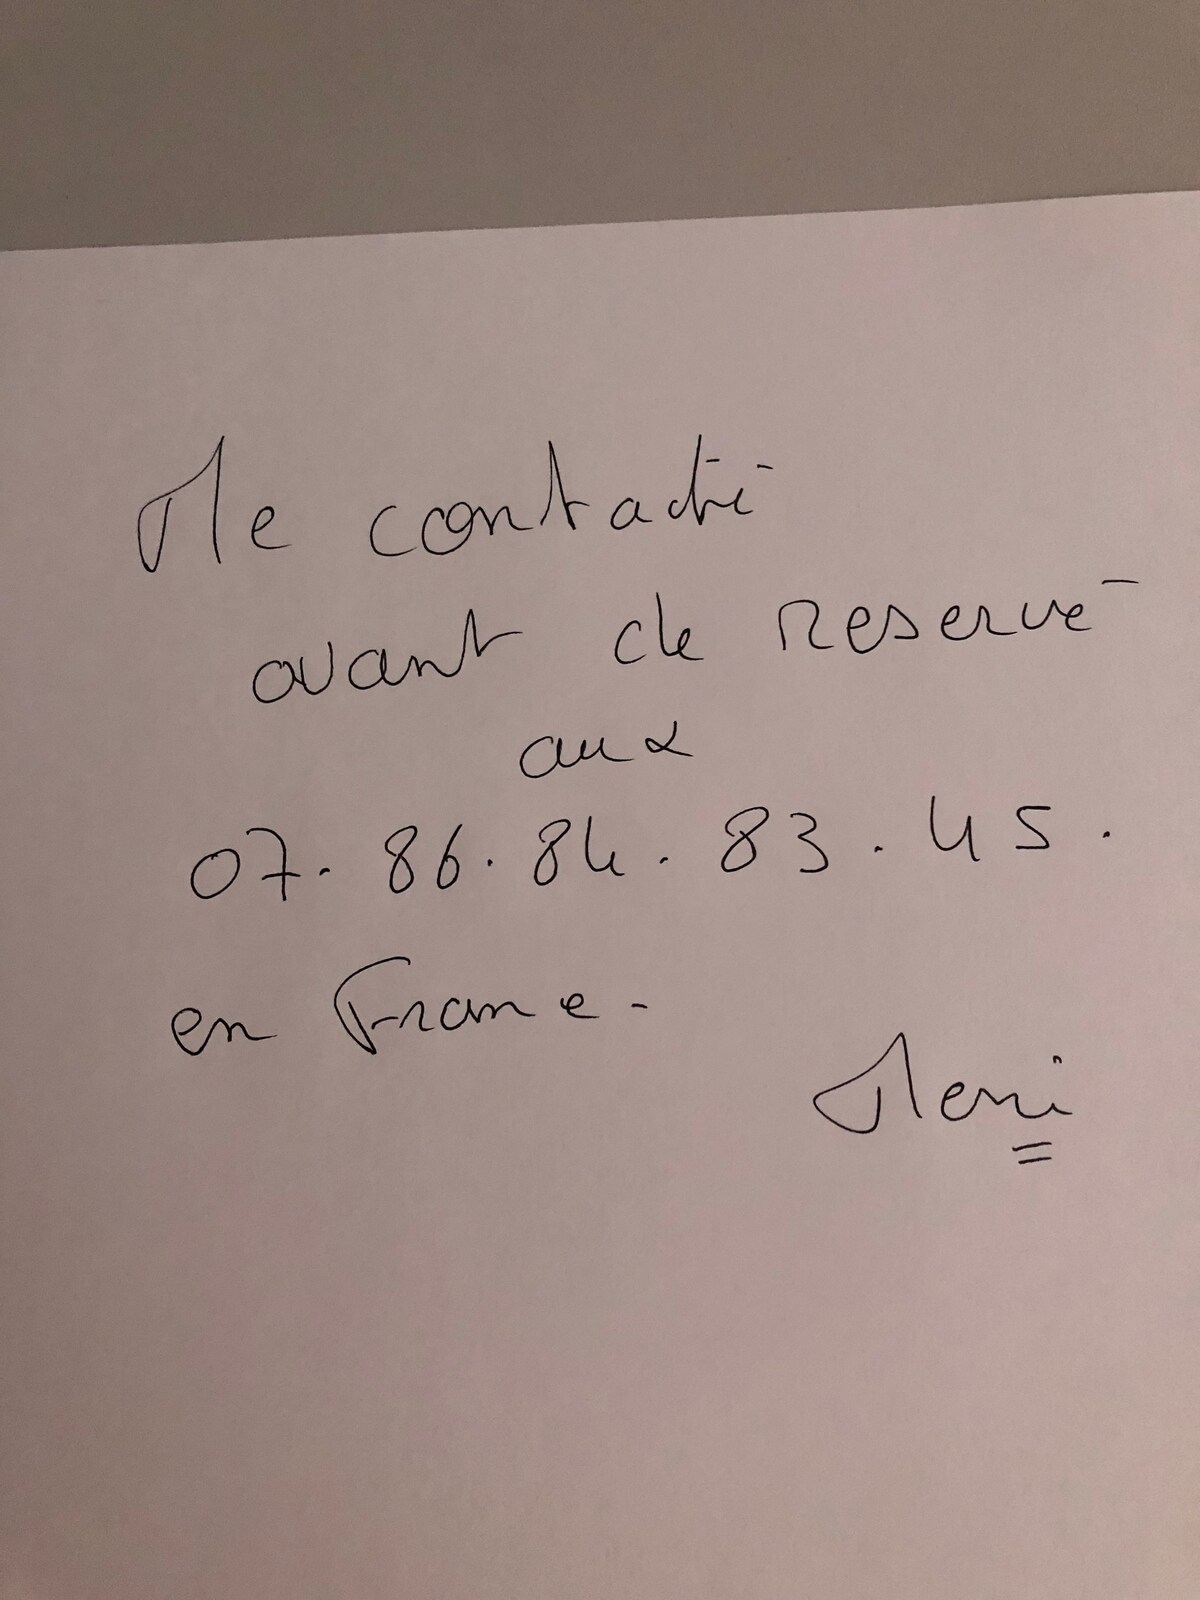 Me contacté
avant de reservé
aux
07.86.84.83.45.
en France.
Merci